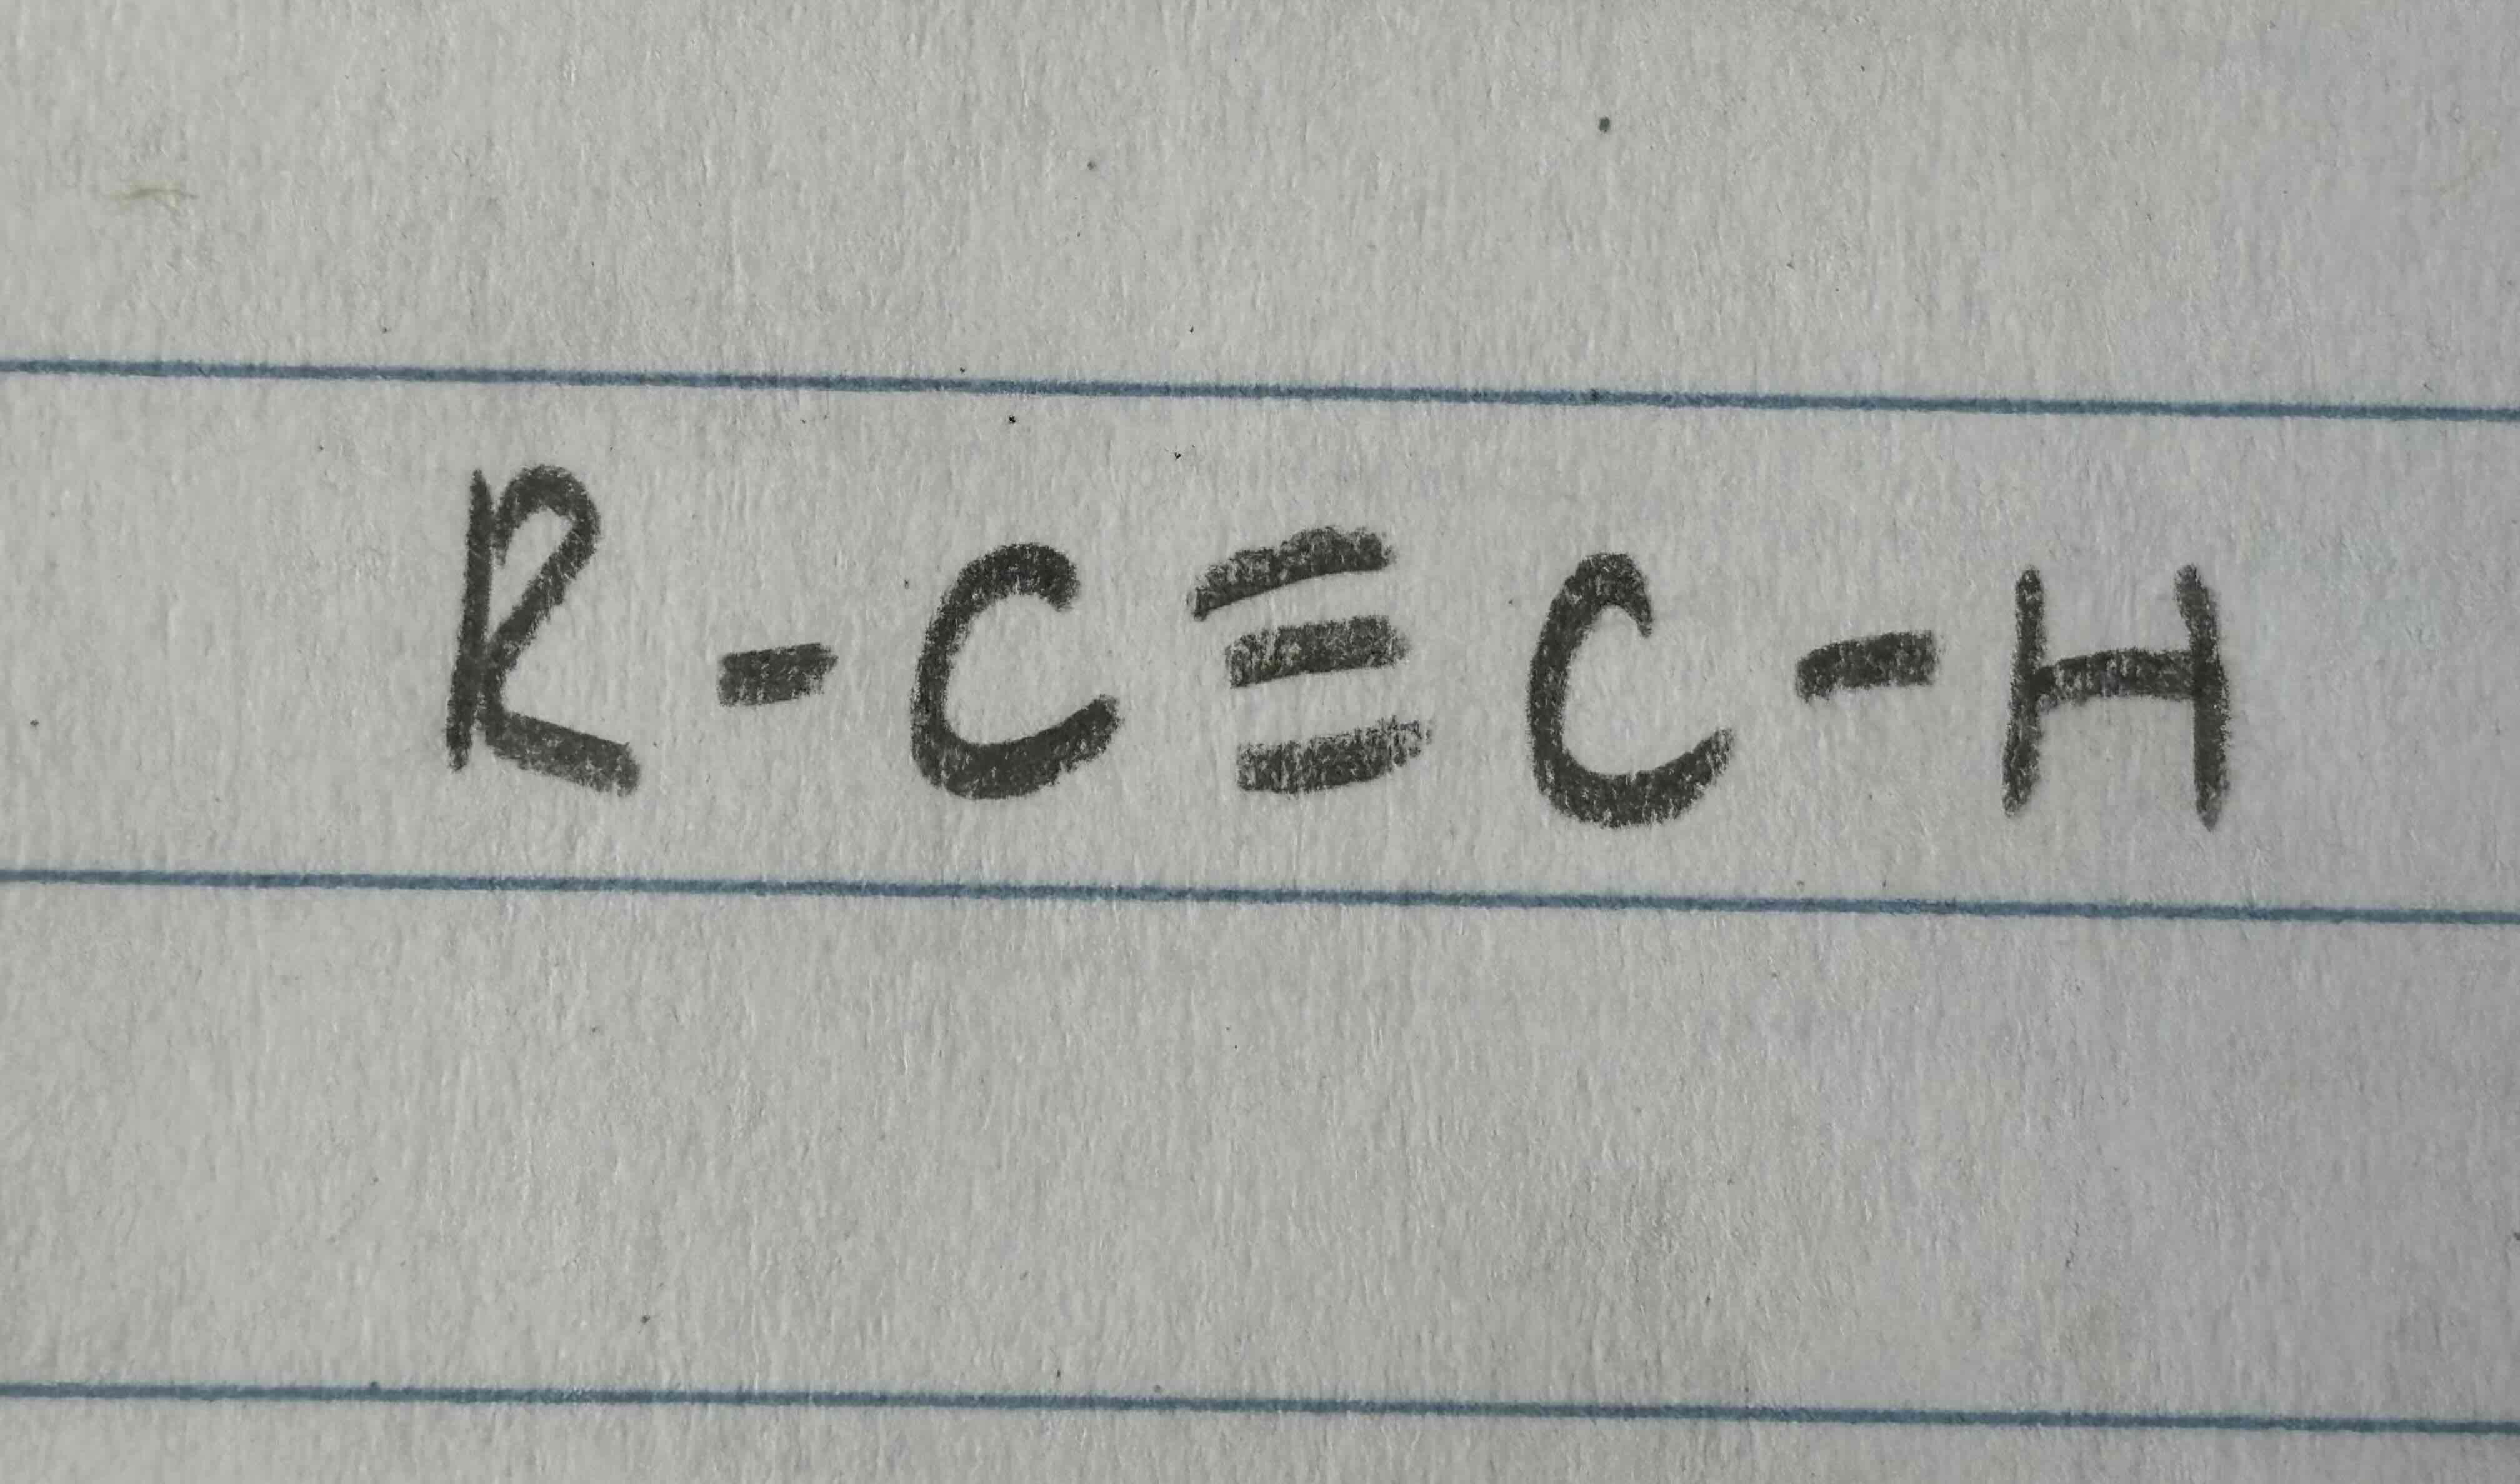 R-C≡C-H